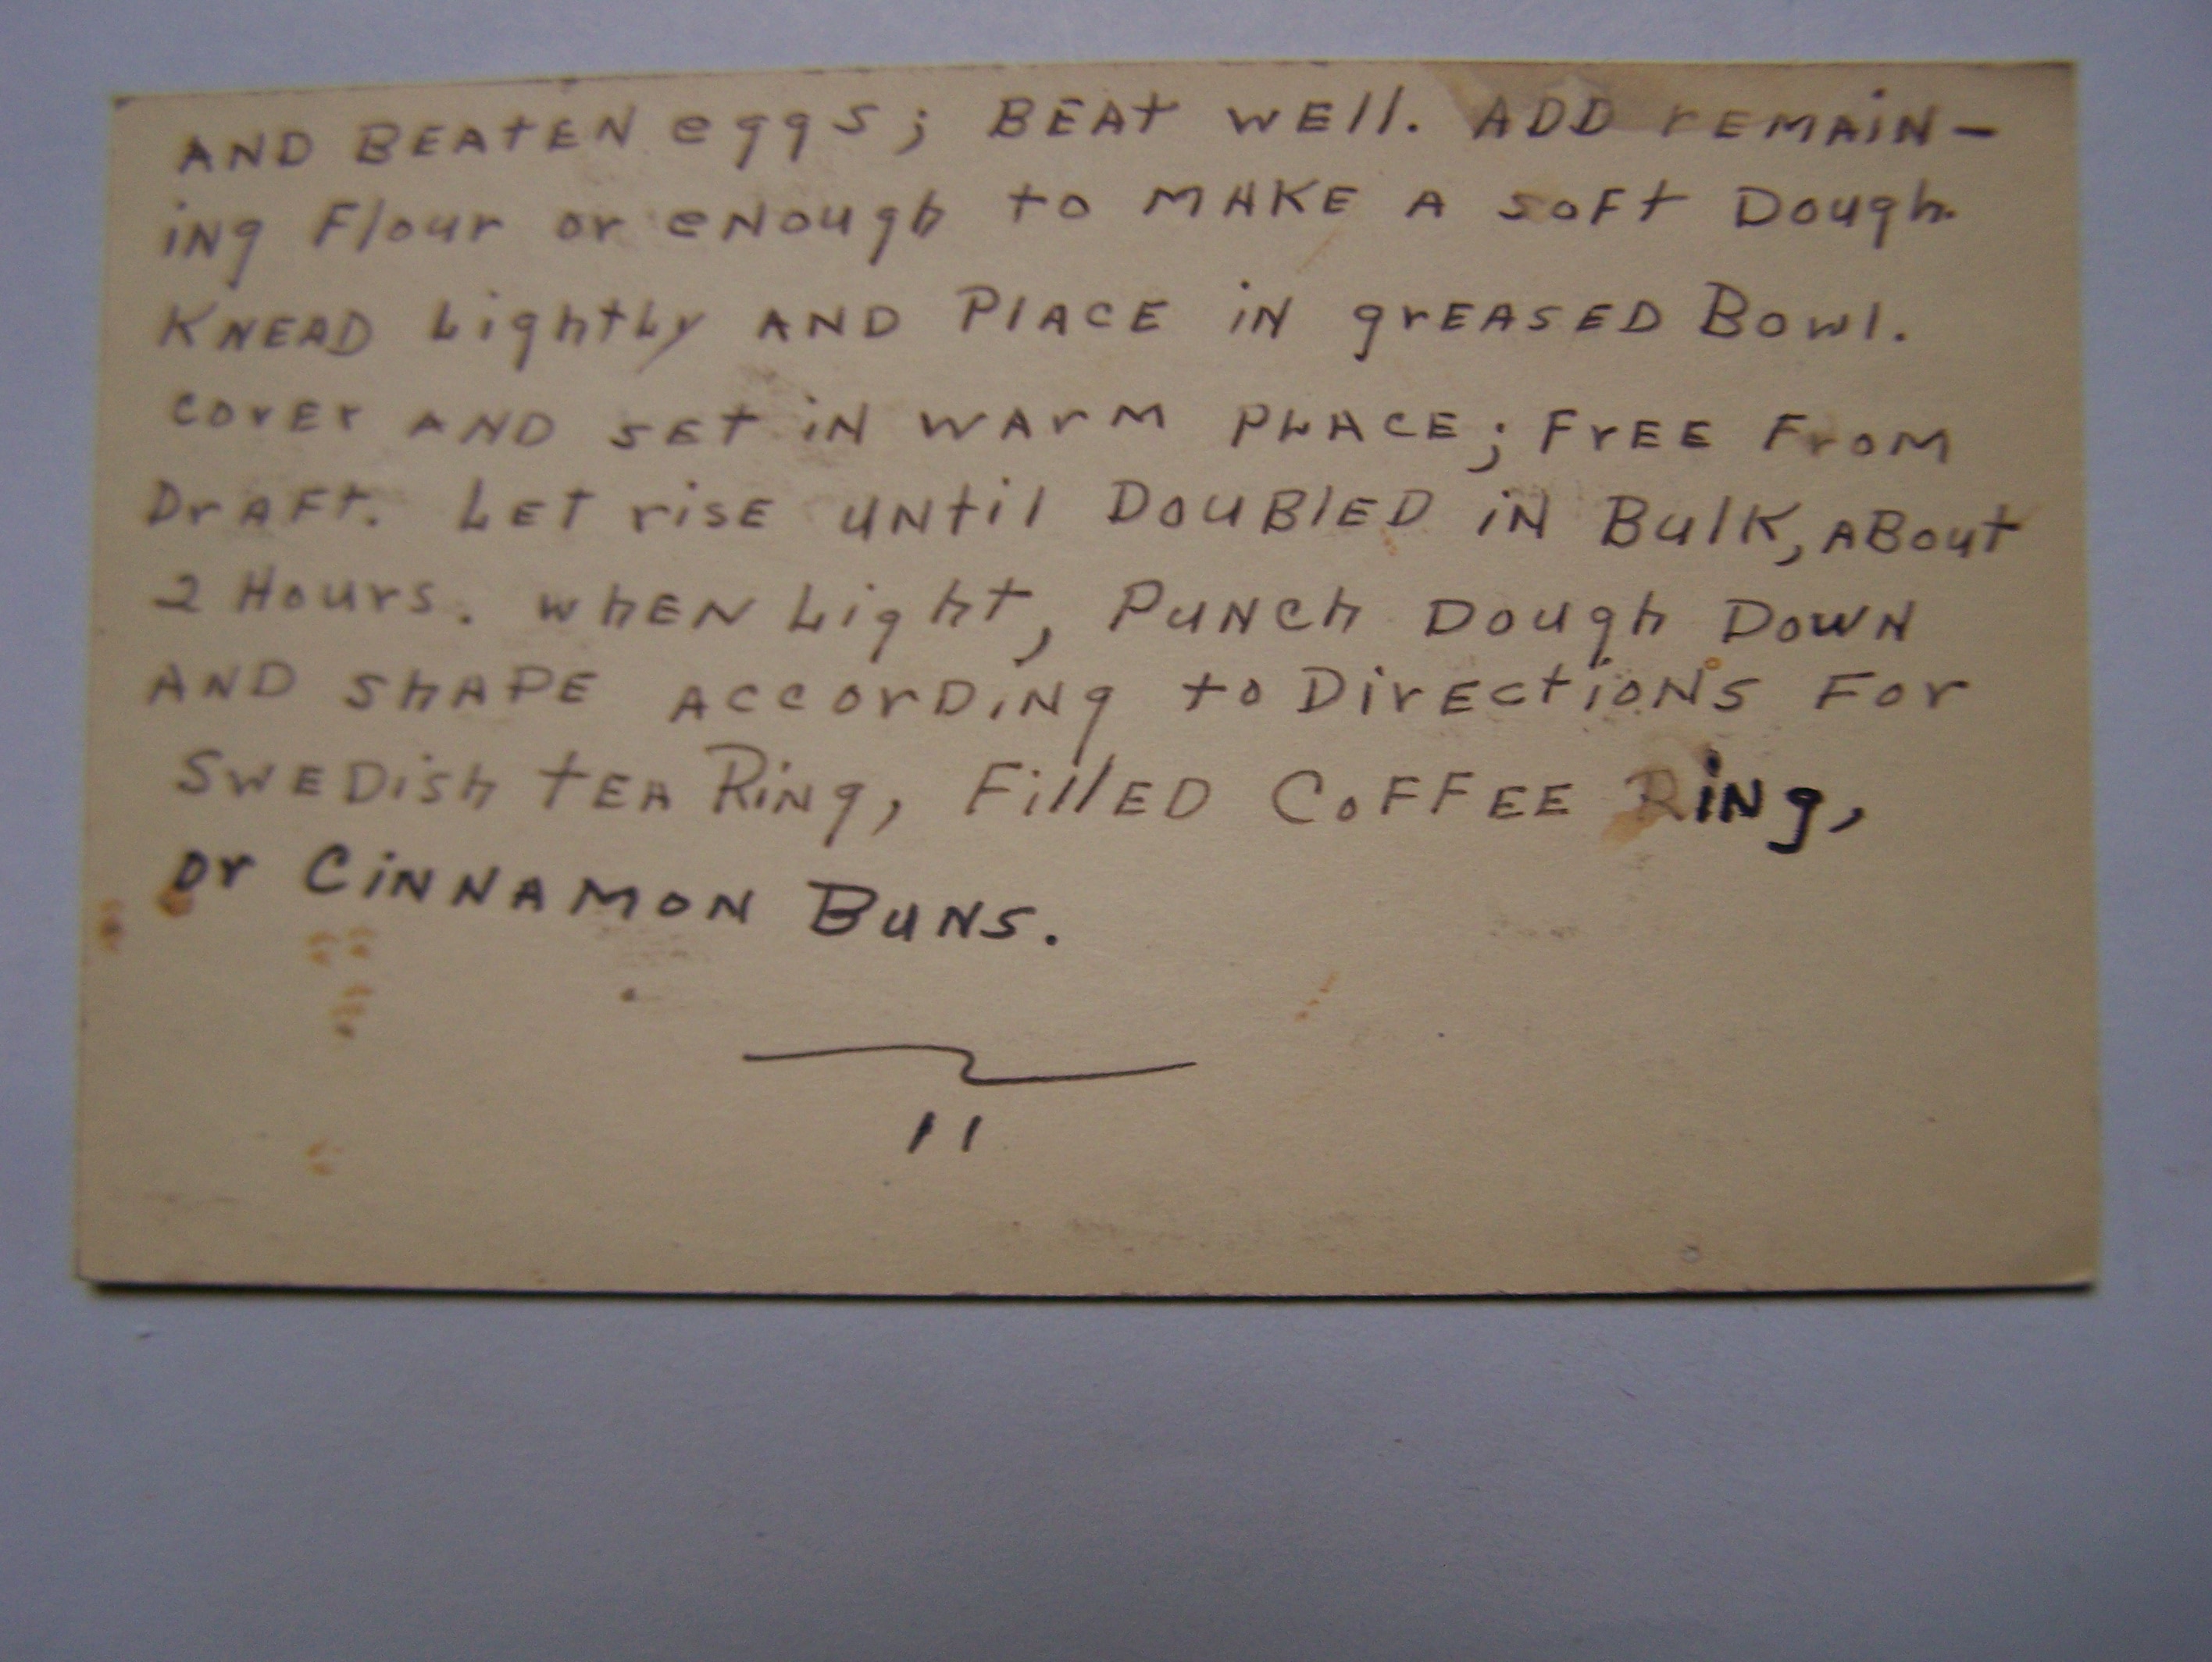 AND BEATEN eggs; BEAT WEll. ADD rEMAiN-
iNg Flour or eNough to MAKE A soFt Dough.
KNEAD Lightly AND PlACE iN grEASED Bowl.
COVEr AND SET iN WArM PLACE; FrEE FroM
DrAFt. LET risE uNtil DouBlED iN BulK, ABout
2 Hours. WhEN Light, PuNch Dough DowN
AND shAPE AccorDiNg to DirEctioNs For
SwEDish tEA RiNg, FillED CoFFEE RiNg,
or CiNNAMoN BuNs.
11